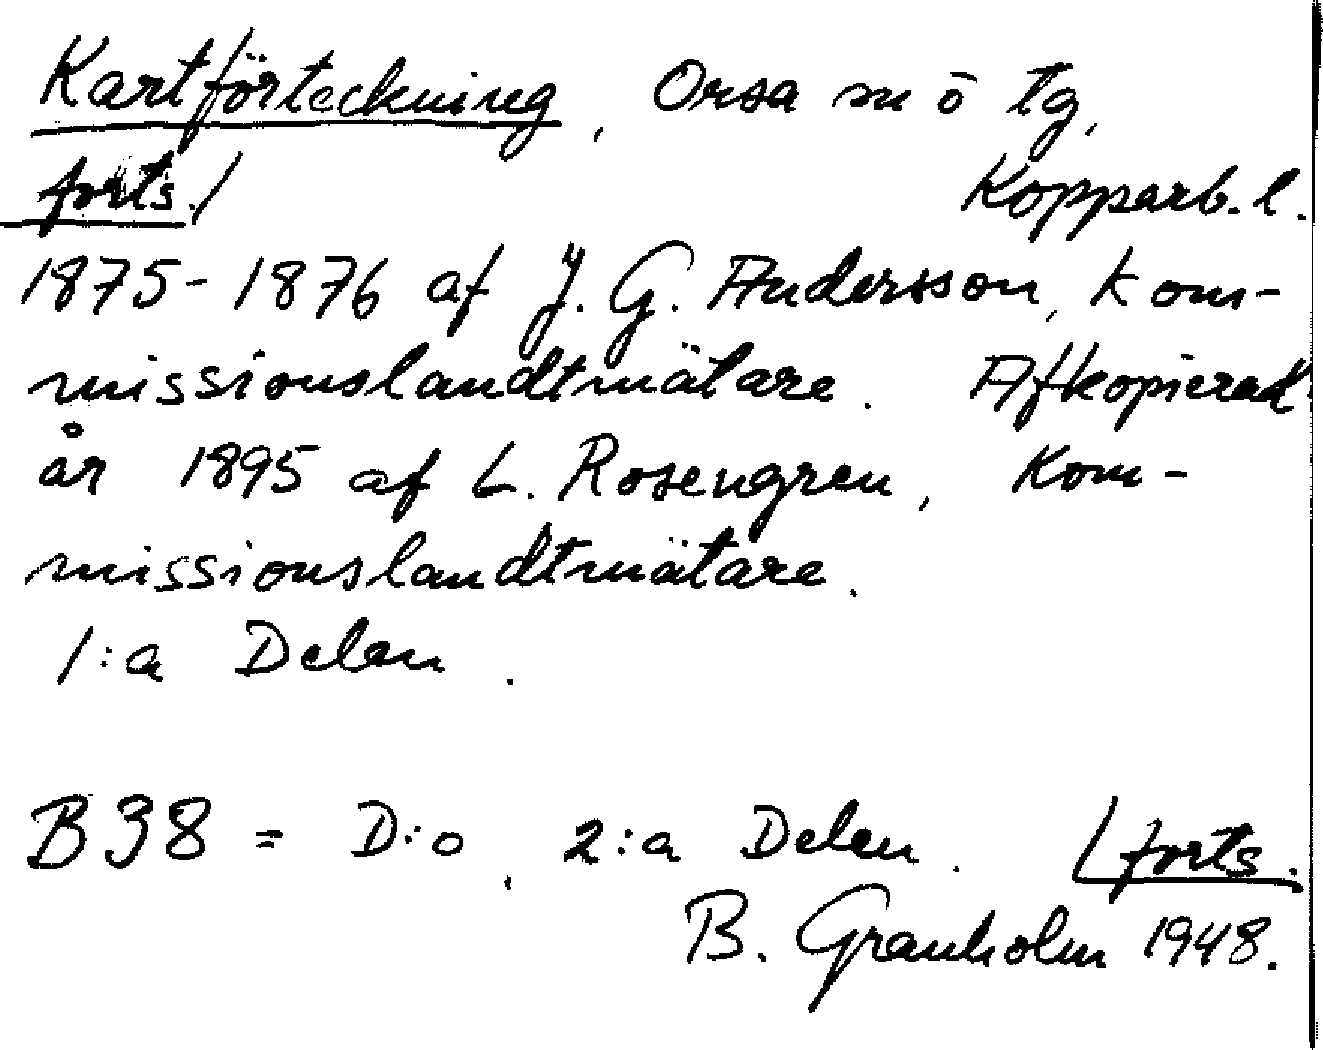 Kartförteckning, Orsa m ö tg,
forts./ Kopparb. l.
1875-1876 af J. G. Andersson, kom-
missionslandtmätare. Afkopierad
år 1895 af L. Rosengren, kom-
missionslandtmätare.
1:a Delen.
B 38 = D:o, 2:a Delen. /forts.
B. Granholm 1948.